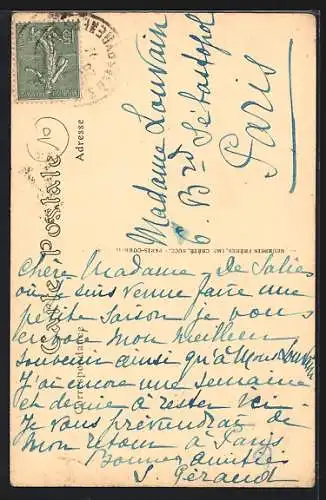 Carte Postale
Correspondance
Adresse
15
10
Madame Louvain
6. Brd Sébastopol
Paris
NEURDEIN FRÈRES, IMP. CRÉTÉ, SUCC. - PARIS-CORBEIL
Chère Madame. De Salies
où je suis venue faire une
petite saison je vous
envoie mon meilleur
souvenir ainsi qu'à Monsr Louvain
J'ai encore une semaine
et demie à rester ici
Je vous préviendrai de
mon retour à Paris
Bonnes amitiés
S. Géraud